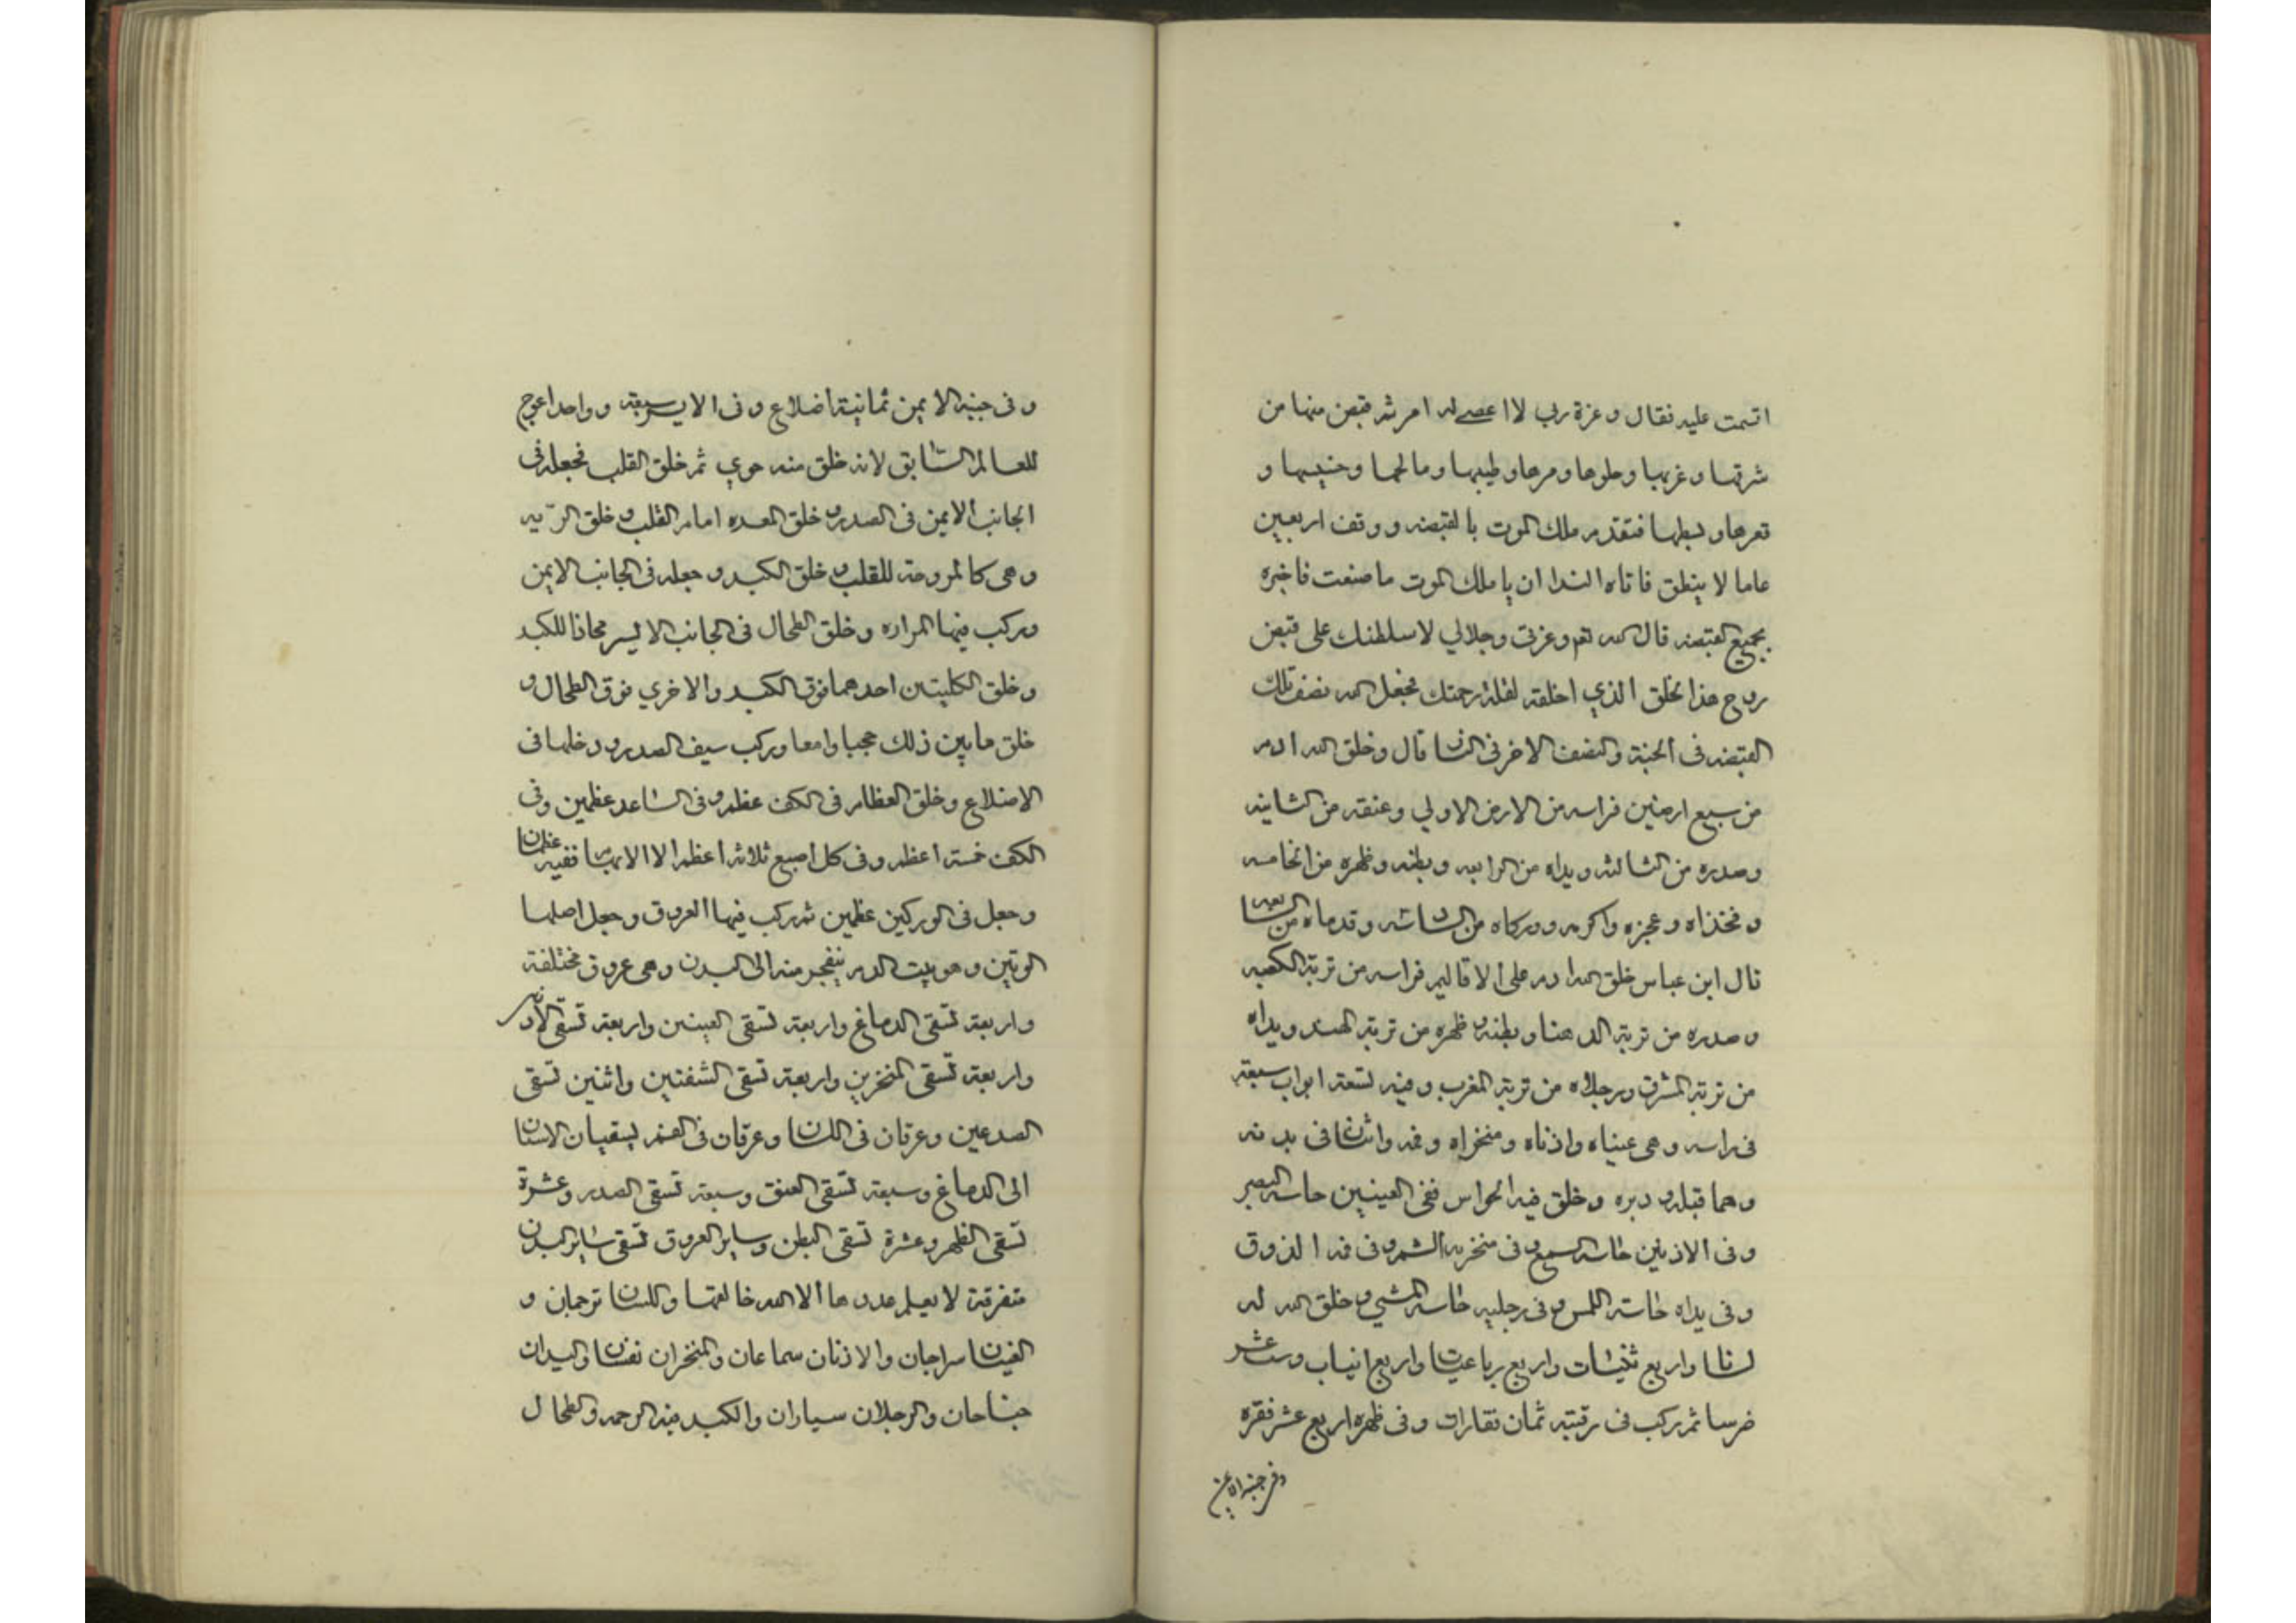 اقسمت عليه فقال وعزة ربي لا اعصى له امر ثم قبض منها من
شرقها وغربها وحلوها ومرها وطيبها ومالحها وخبيثها و
قعرها وبسطها فتقدم ملك الموت بالقبضه ووقف اربعين
عاما لا ينطق فاتاه الندا ان يا ملك الموت ما صنعت فاخبره
بجميع القبضه قال الله تعم وعزتي وجلالي لاسلطنك على قبض
روح هذا الخلق الذي اخلقه لقلة رحمتك فجعل الله نصف تلك
القبضه في الجنة والنصف الاخر في النار قال وخلق الله ادم
من سبع ارضين فراسه من الارض الاولي وعنقه من الثانيه
وصدره من الثالثه ويداه من الرابعه وبطنه وظهره من الخامسه
وفخذاه وعجزه ووركاه من السادسه وقدماه من السابعه
قال ابن عباس خلق الله ادم على الاقاليم فراسه من تربة الكعبه
وصدره من تربة الدهنا وبطنه وظهره من تربة الهند ويداه
من تربة المشرق ورجلاه من تربة المغرب وفيه تسعة ابواب سبعة
في راسه وهى عيناه واذناه ومنخراه وفمه واثنان في بدنه
وهما قبله ودبره وخلق فيه الحواس ففى العينين حاسة البصر
وفى الاذنين حاسة السمع وفى منخريه الشم وفى فمه الذوق
وفى يداه حاسة اللمس وفى رجليه حاسة المشي وخلق الله له
لسانا واربع ثنيات واربع رباعيات واربع انياب وست عشر
ضرسا ثم ركب فى رقبته ثمان فقارات وفى ظهره اربع عشر فقره
وفى جنبه الايمن
وفى جنبه الايمن ثمانية اضلاع وفى الايسر سبعة وواحد اعوج
للعالم السابق لانه خلق منه حوي ثم خلق القلب فجعله فى
الجانب الايمن فى الصدر وخلق المعده امام القلب وخلق الريه
وهى كالمروحة للقلب وخلق الكبد وجعله فى الجانب الايمن
وركب فيها المراره وخلق الطحال فى الجانب الايسر محاذا للكبد
وخلق الكليتين احدهما فوق الكبد والاخري فوق الطحال و
خلق مابين ذلك حجبا وامعا وركب سيف الصدر ودخلها فى
الاضلاع وخلق العظام فى الكف عظم وفى الساعد عظمين وفى
الكف خمسة اعظم وفى كل اصبع ثلاثة اعظم الا الابهام ففيه عظمان
وجعل فى الوركين عظمين ثم ركب فيها العروق وجعل اصلها
الوتين وهو بيت الدم ينفجر منه الى البدن وهى عروق مختلفة
واربعة تسقى الدماغ واربعة تسقى العينين واربعة تسقى الاذنين
واربعة تسقى المنخرين واربعة تسقى الشفتين واثنين تسقى
الصدغين وعرقان فى اللسان وعرقان فى الفم يسقيان الاسنان
الى الدماغ وسبعة تسقى العنق وسبعة تسقى الصدر وعشرة
تسقى الظهر وعشرة تسقى البطن وساير العروق تسقى ساير البدن
متفرقة لا يعلم عددها الا الله خالقها واللسان ترجمان و
العينان سراجان والاذنان سماعان والمنخران نفسان واليدان
جناحان والرجلان سياران والكبد فيه الرحمه والطحال